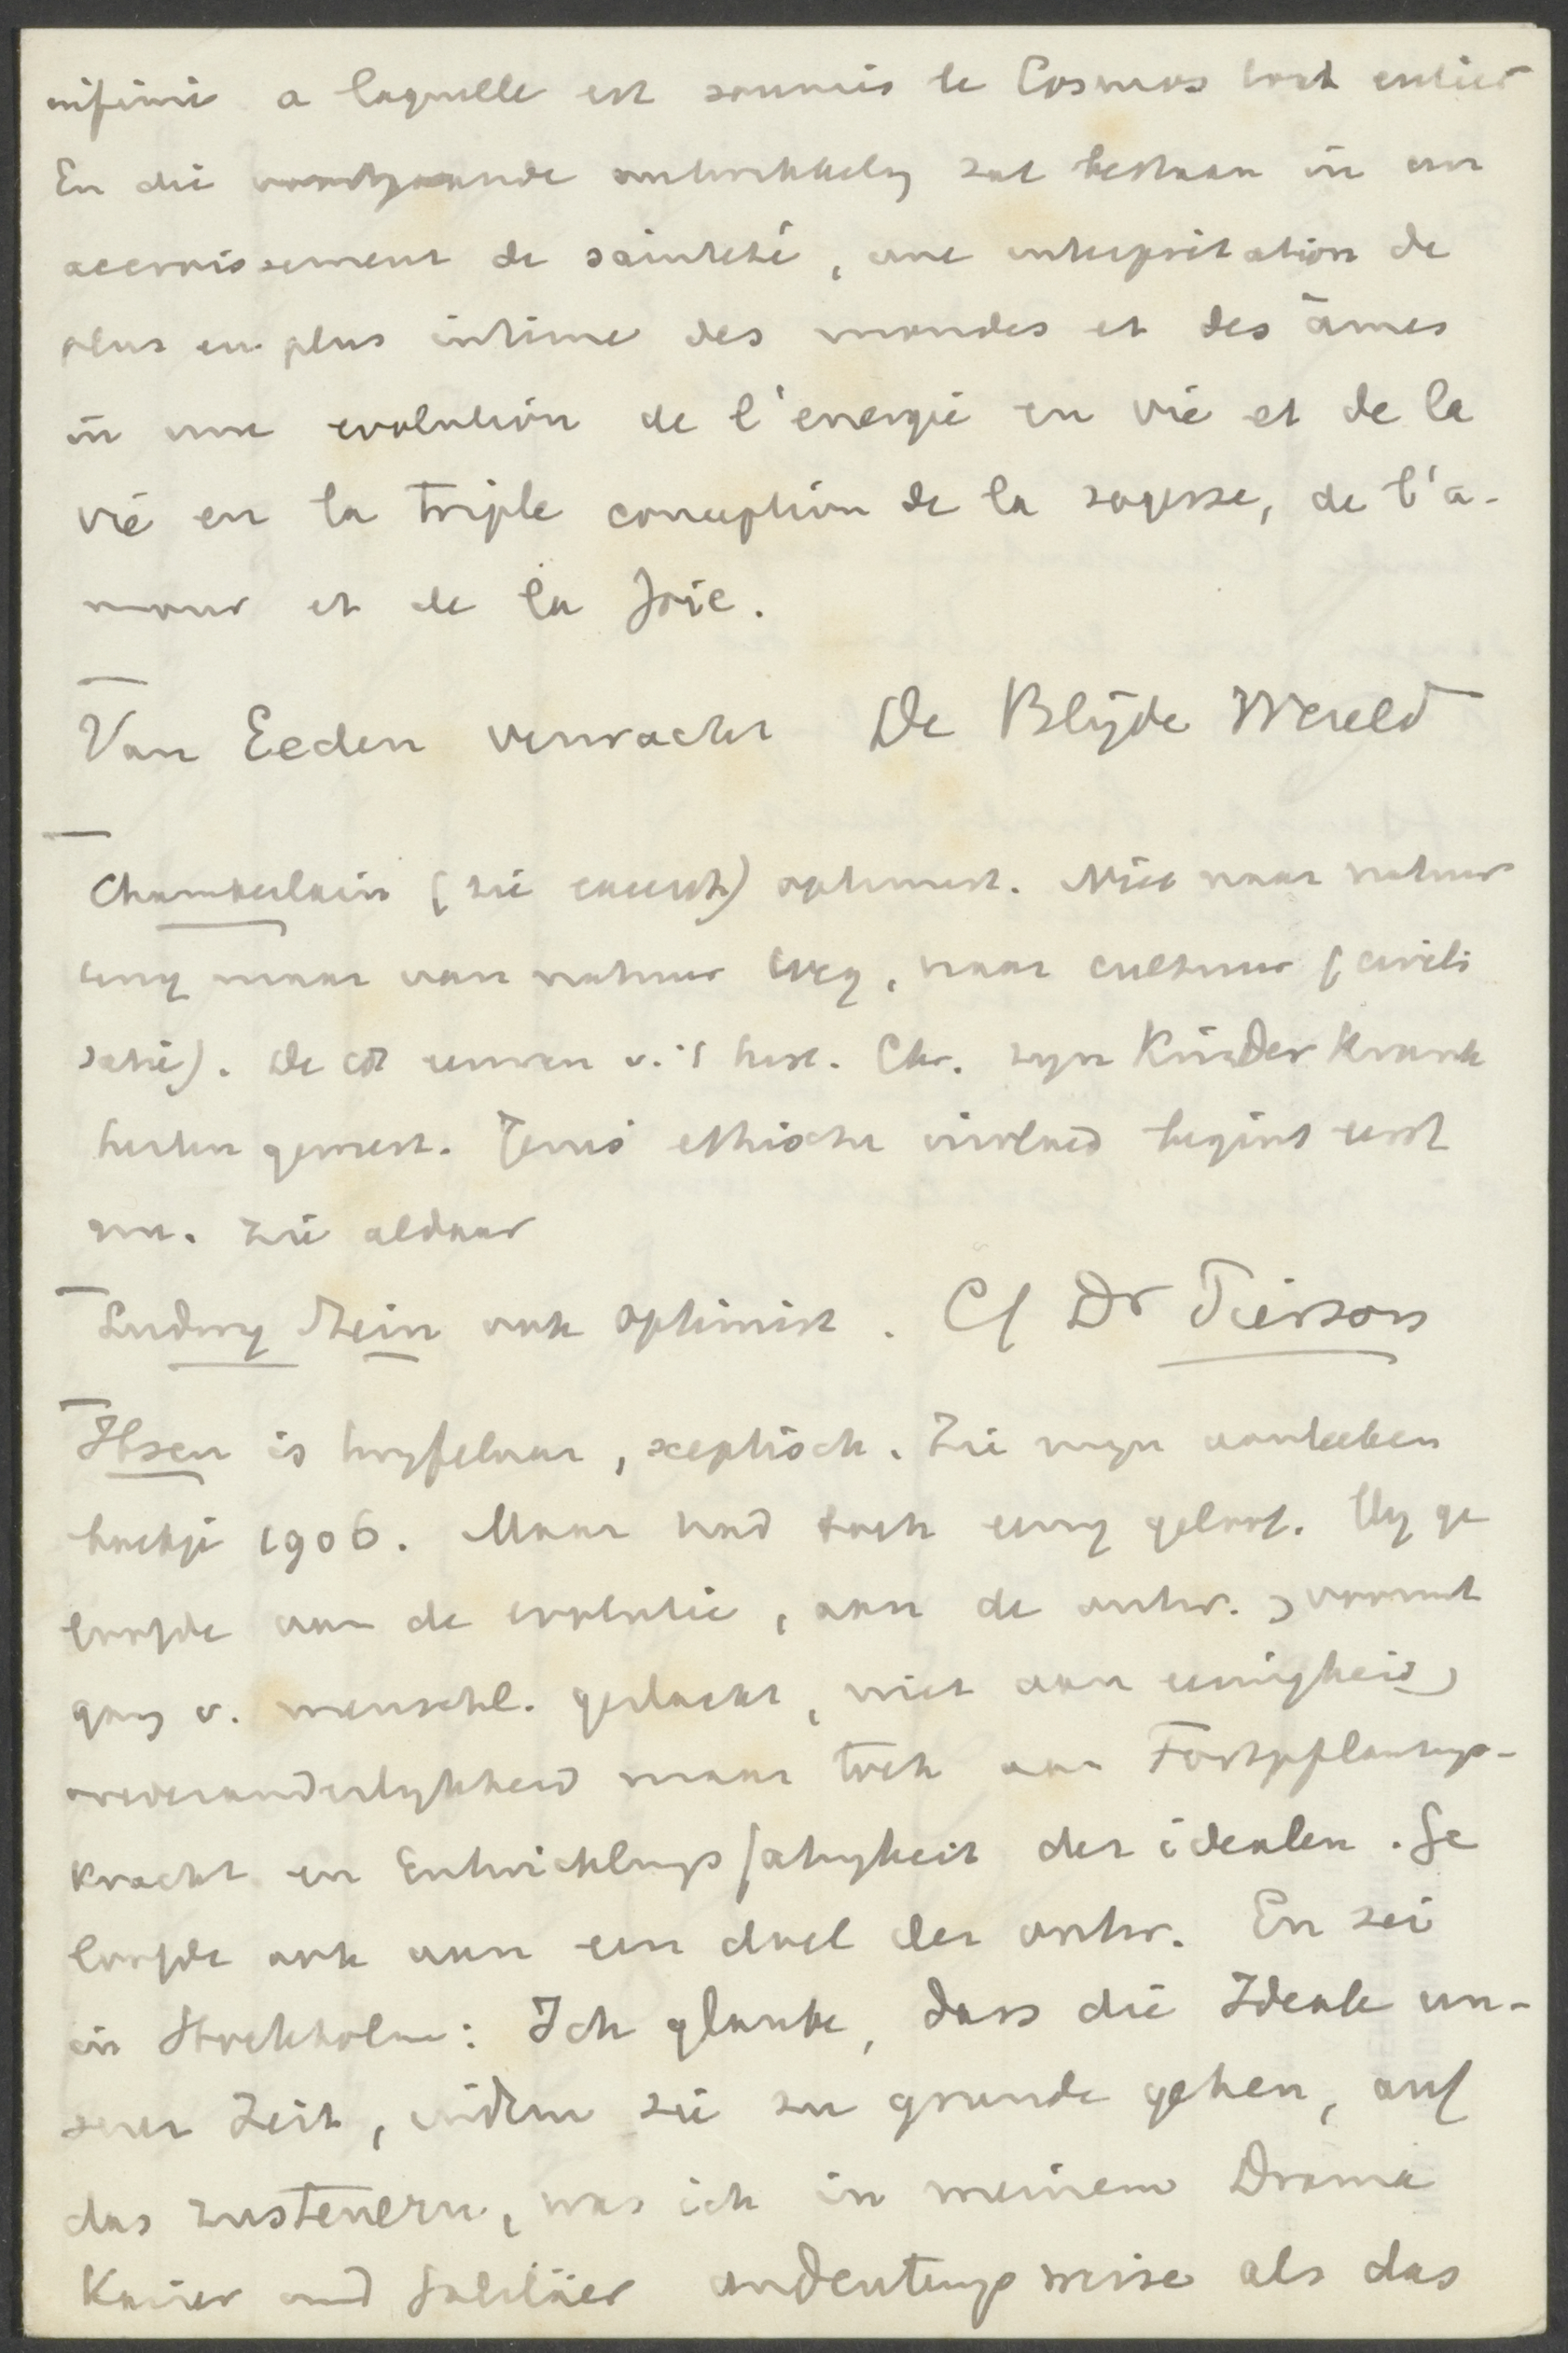 infinie a laquelle est soumis le Cosmos tout entier
En die voortgaande ontwikkelg zal bestaan in un
accroissement de sainteté, une interprétation de
plus en plus intime des mondes et des âmes
in une evolution de l'energie en vie et de la
vie en la triple conception de la sagesse, de l'a-
mour et de la Joie.
Van Eeden verwacht De Blijde Wereld
Chamberlain (zie excerpt) optimist. Niet naar natuur
terug maar van natuur weg, naar cultuur (civili
satie). De eeuwen v. 't hist. Chr. zyn Kinder Krank
heiten geweest. Jezus ethische invloed begint eerst
nu. Zie aldaar
Ludwig Stein ook optimist. Cf Dr Pierson
Ibsen is twyfelaar, sceptisch. Zie myn aanteeken
boekje 1906. Maar had toch eenig geloof. Hy ge
loofde aan de evolutie, aan de ontw. vooruit
gang v. menschl. geslacht, niet aan eeuwigheid
onveranderlykheid maar toch aan Fortpflantungs-
kracht en Entwicklungsfahigheit der idealen. Ge
loofde ook aan een doel der ontw. En zei
in Stockholm: Ich glaube, dass die Ideale un-
serer Zeit, indem sie zu grunde gehen, auf
das zusteuern, was ich in meinem Drama
Kaiser und Galiläer andeutungsweise als das